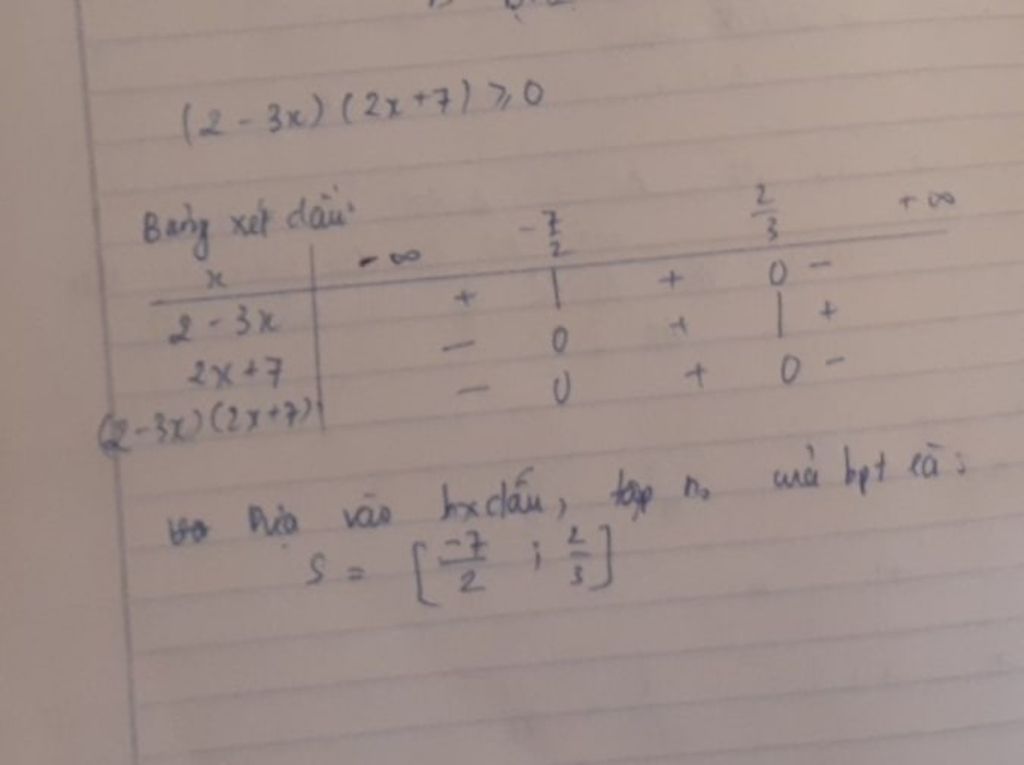 (2 - 3x) (2x + 7) ⩾ 0
Bảng xét dấu:
x -∞ -7/2 2/3 +∞
2 - 3x + | + 0 -
2x + 7 - 0 + | +
(2-3x)(2x+7) - 0 + 0 -
Dựa vào bxdấu, tập n₀ của bpt là:
S = [-7/2 ; 2/3]